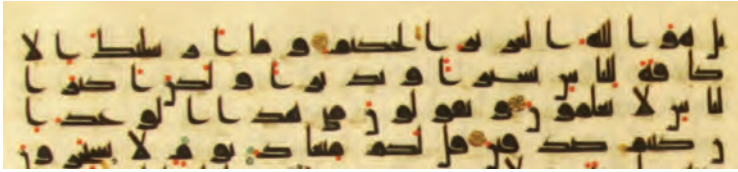 بل هو الله العزيز الحكيم وما أرسلنك إلا
كافة للناس بشيرا ونذيرا ولكن أكثر ا
لناس لا يعلمون ويقولون متى هذا الوعد إ
ن كنتم صدقين قل لكم ميعاد يوم لا تستخرون